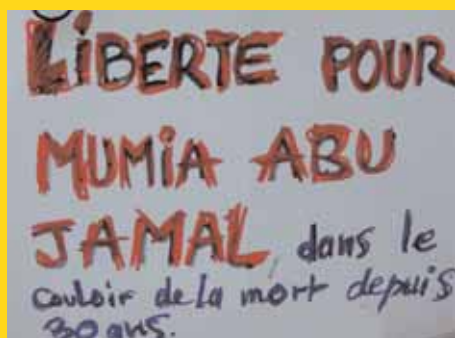 LIBERTE POUR
MUMIA ABU
JAMAL, dans le
couloir de la mort depuis
30 ans.